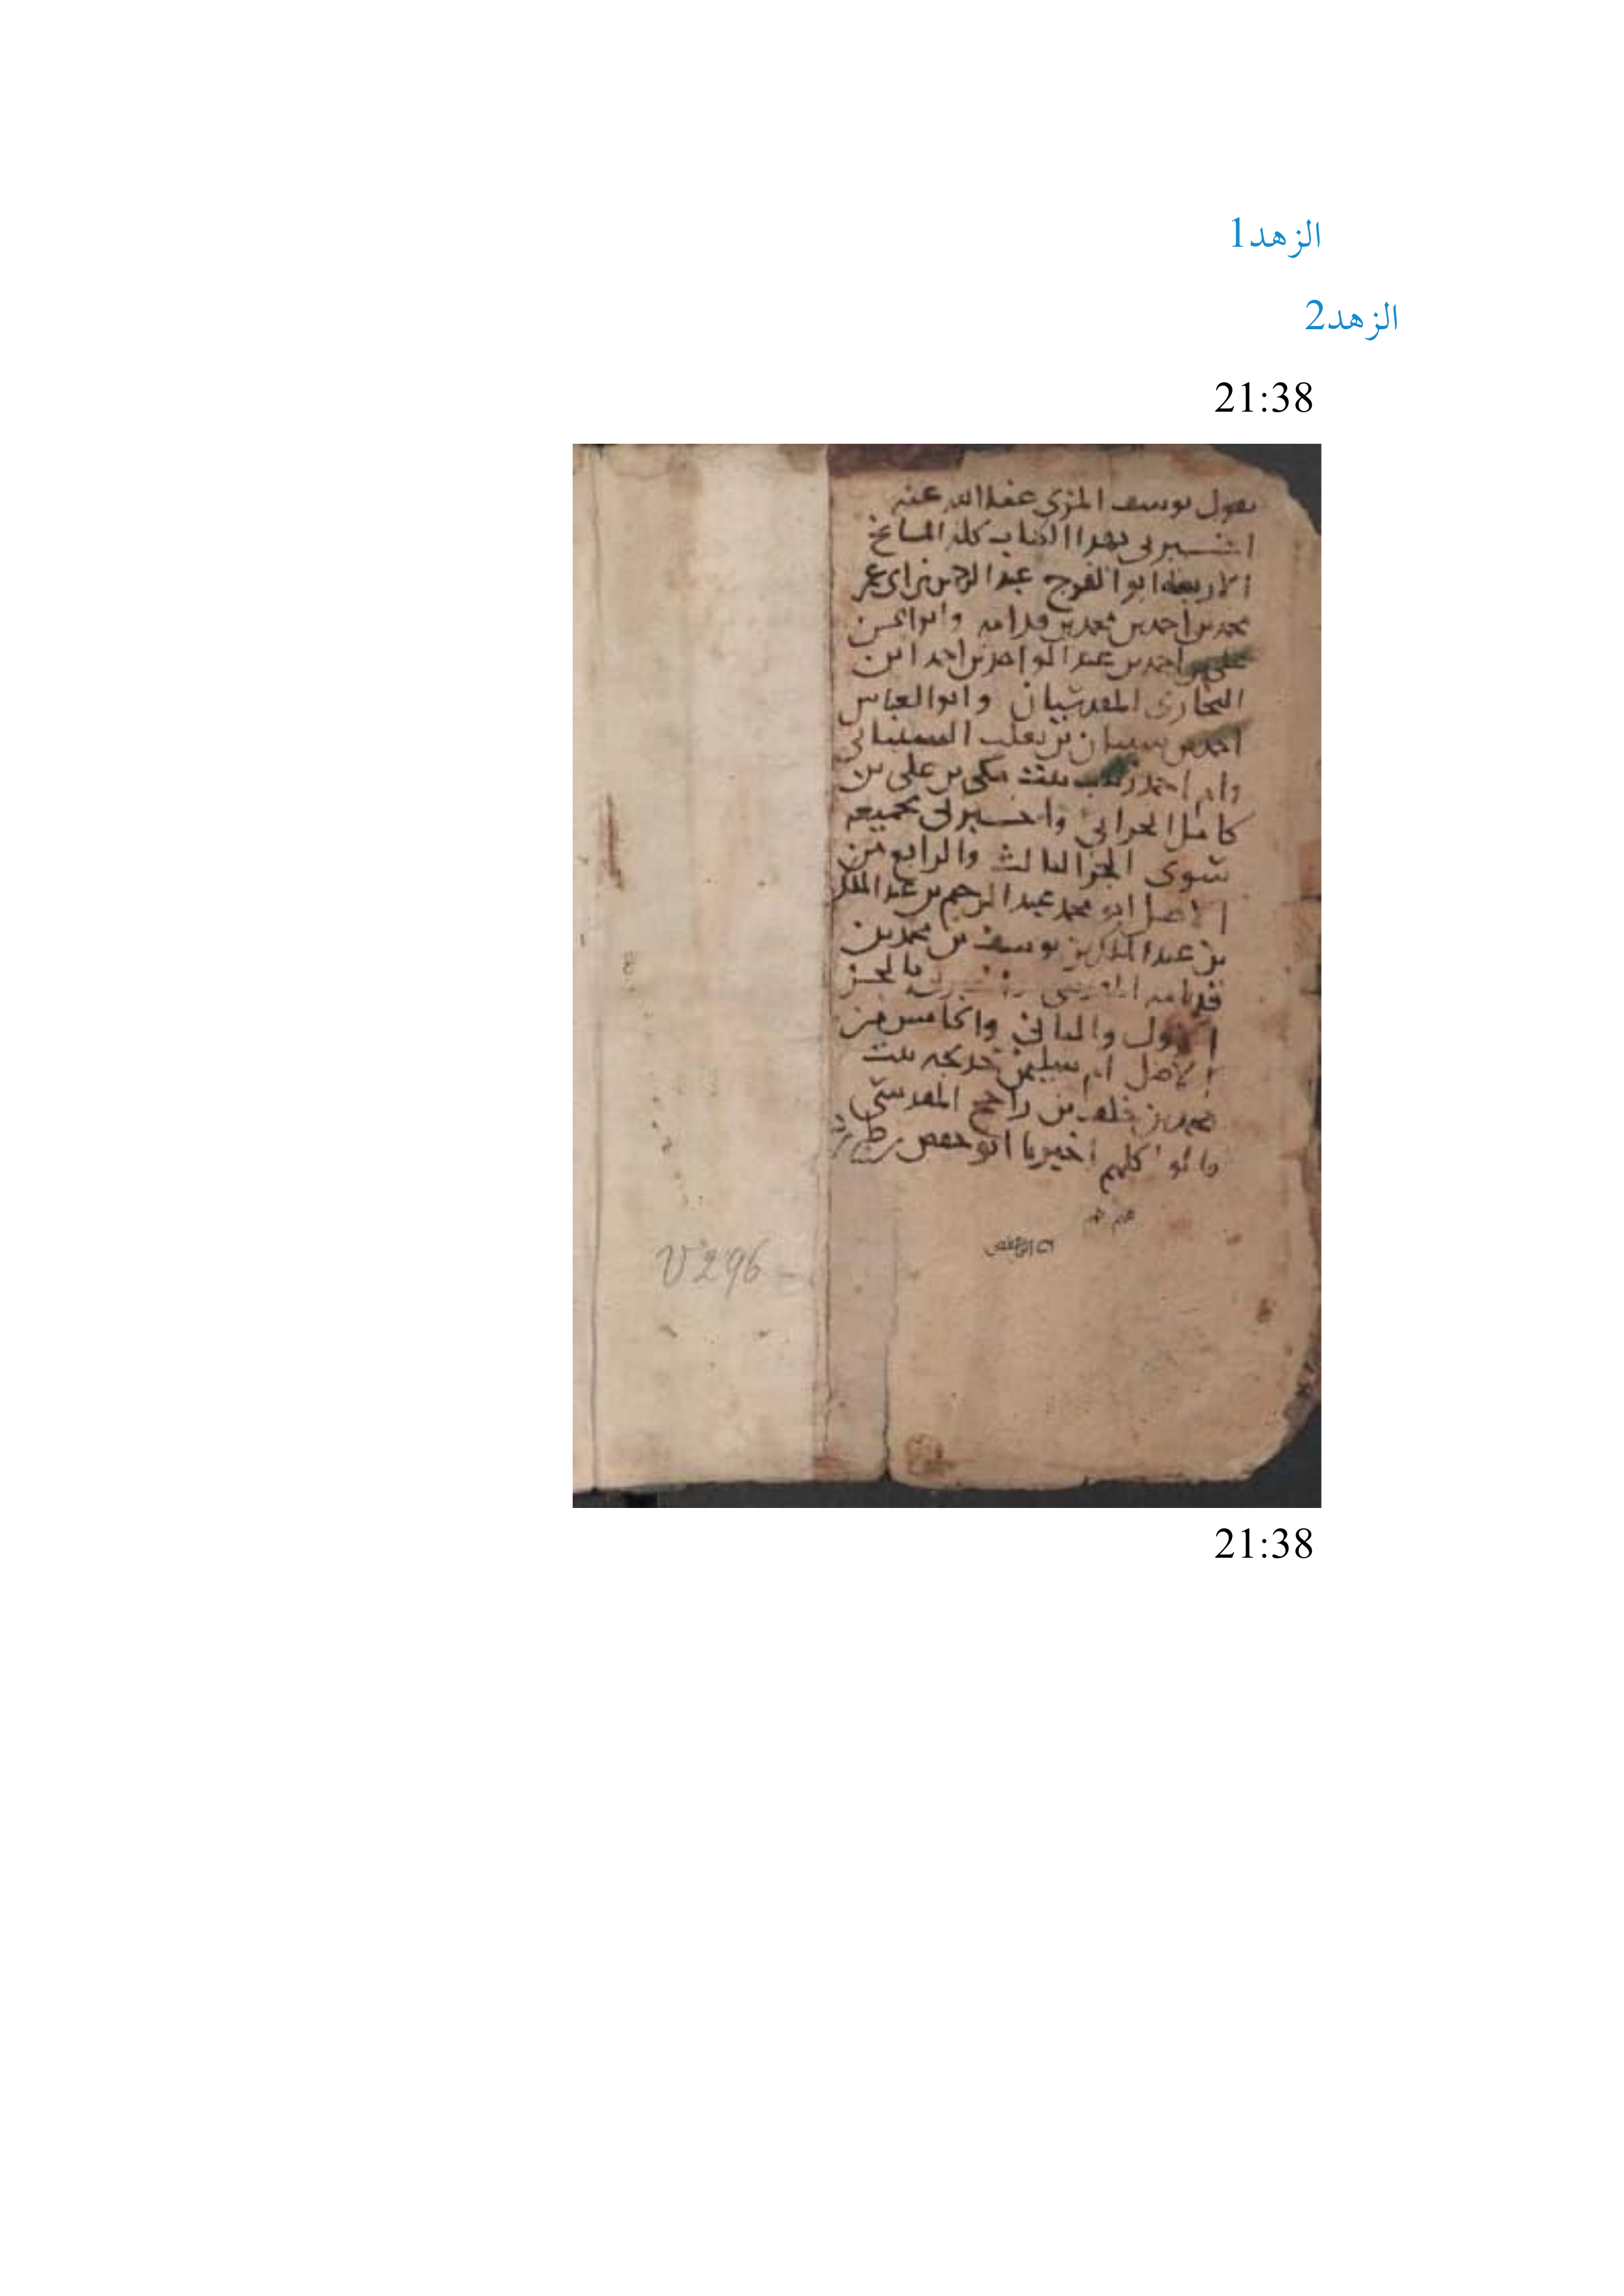 الزهد1
الزهد2
21:38
يقول يوسف المزي عفا الله عنه
اخبرني بهذا الكتاب كله المشايخ
الاربعة ابو الفرج عبد الرحمن بن ابي عمر
محمد بن احمد بن محمد بن قدامه وابو الحسن
علي بن احمد بن عبد الواحد بن احمد ابن
البخاري المقدسيان وابو العباس
احمد بن شيبان بن تغلب الشيباني
وام احمد زينب بنت مكي بن علي بن
كامل الحراني واخبرني بجميعه
سوى الجزء الثالث والرابع من
الاصل ابو محمد عبد الرحيم بن عبد الملك
بن عبد الملك بن يوسف بن محمد بن
قدامه المقدسي بالجزء
الاول والثاني والخامس من
الاصل ام سليمن خديجه بنت
محمد بن خلف بن راجح المقدسي
قالوا كلهم اخبرنا ابو حفص
V296
21:38